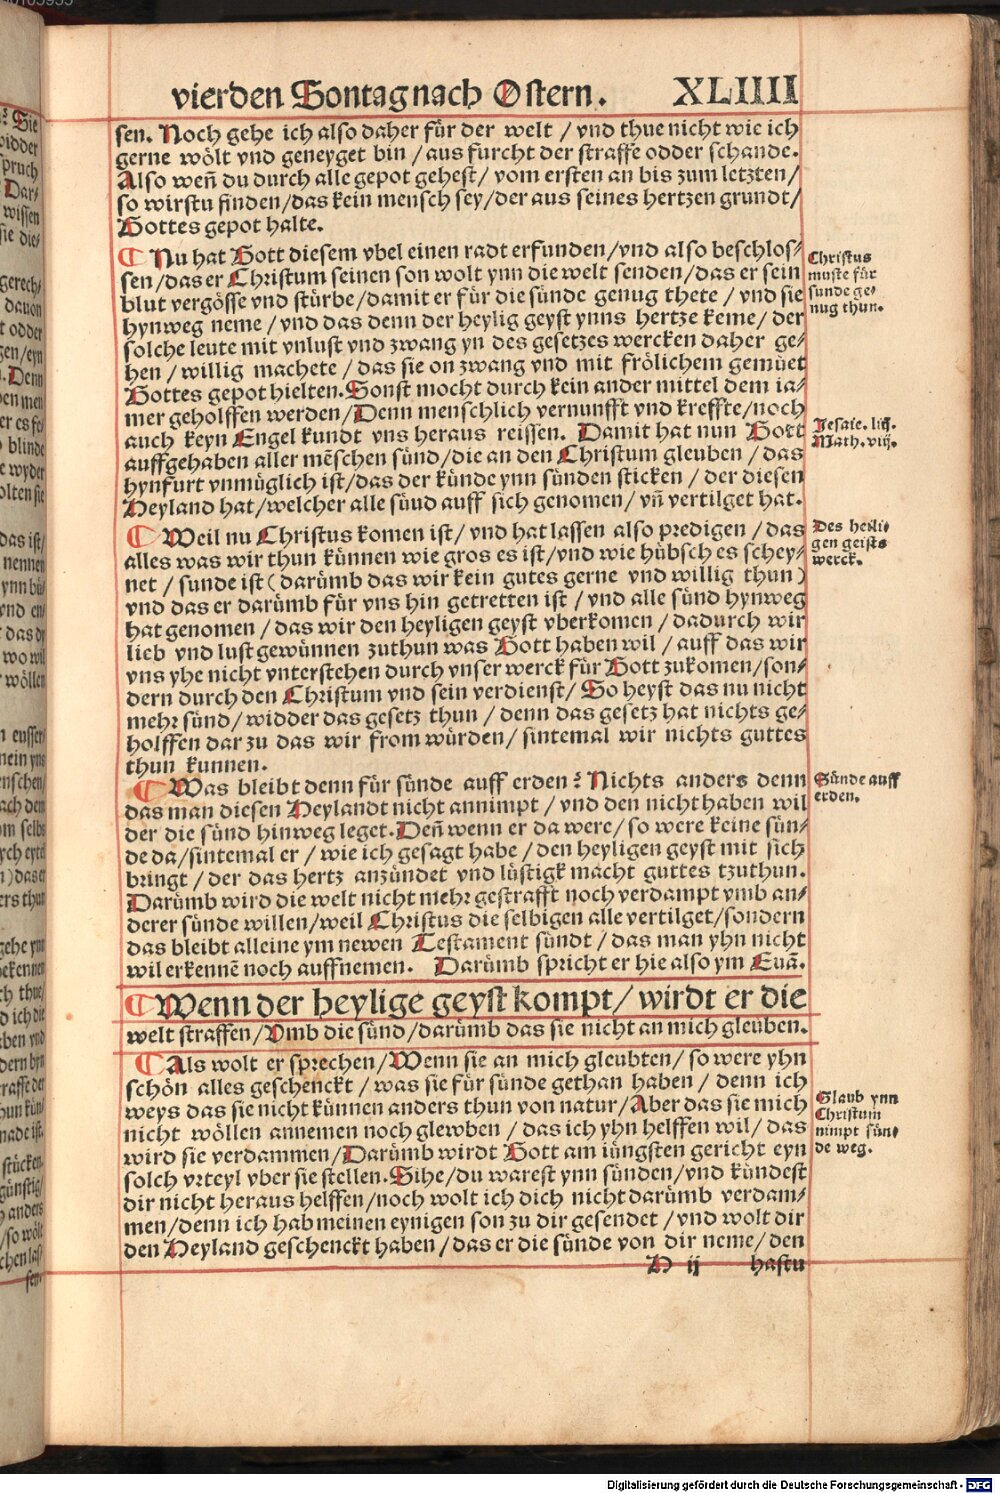 vierden Sontag nach Ostern. XLIIII
sen. Noch gehe ich also daher für der welt / vnd thue nicht wie ich
gerne wölt vnd geneyget bin / aus furcht der straffe odder schande.
Also weñ du durch alle gepot gehest / vom ersten an bis zum letzten /
so wirstu finden / das kein mensch sey / der aus seines hertzen grundt /
Gottes gepot halte.
¶ Nu hat Gott diesem vbel einen radt erfunden / vnd also beschlos⸗
sen / das er Christum seinen son wolt ynn die welt senden / das er sein
blut vergösse vnd stürbe / damit er für die sünde genug thete / vnd sie
hynweg neme / vnd das denn der heylig geyst ynns hertze keme / der
solche leute mit vnlust vnd zwang yn des gesetzes wercken daher ge⸗
hen / willig machete / das sie on zwang vnd mit frölichem gemüet
Gottes gepot hielten. Sonst mocht durch kein ander mittel dem ia⸗
mer geholffen werden / Denn menschlich vernunfft vnd kreffte / noch
auch keyn Engel kundt vns heraus reissen. Damit hat nun Gott
auffgehaben aller mēschen sünd / die an den Christum gleuben / das
hynfurt vnmüglich ist / das der künde ynn sünden sticken / der diesen
Heyland hat / welcher alle süud auff sich genomen / vñ vertilget hat.
Christus
muste für
sunde ge⸗
nug thun.
Jesaie. liij.
Math. viij.
¶ Weil nu Christus komen ist / vnd hat lassen also predigen / das
alles was wir thun künnen wie gros es ist / vnd wie hübsch es schey⸗
net / sunde ist ( darümb das wir kein gutes gerne vnd willig thun )
vnd das er darümb für vns hin getretten ist / vnd alle sünd hynweg
hat genomen / das wir den heyligen geyst vberkomen / dadurch wir
lieb vnd lust gewünnen zuthun was Gott haben wil / auff das wir
vns yhe nicht vnterstehen durch vnser werck für Gott zukomen / son⸗
dern durch den Christum vnd sein verdienst / So heyst das nu nicht
mehr sünd / widder das gesetz thun / denn das gesetz hat nichts ge⸗
holffen dar zu das wir from würden / sintemal wir nichts guttes
thun kunnen.
Des heili⸗
gen geists
werck.
¶ Was bleibt denn für sünde auff erden? Nichts anders denn
das man diesen Heylandt nicht annimpt / vnd den nicht haben wil
der die sünd hinweg leget. Deñ wenn er da were / so were keine sün⸗
de da / sintemal er / wie ich gesagt habe / den heyligen geyst mit sich
bringt / der das hertz anzündet vnd lüstigk macht guttes tzuthun.
Darümb wird die welt nicht mehr gestrafft noch verdampt vmb an⸗
derer sünde willen / weil Christus die selbigen alle vertilget / sondern
das bleibt alleine ym newen Testament sündt / das man yhn nicht
wil erkennē noch auffnemen. Darümb spricht er hie also ym Euā.
Sünde auff
erden.
¶ Wenn der heylige geyst kompt / wirdt er die
welt straffen / Vmb die sünd / darümb das sie nicht an mich gleüben.
¶ Als wolt er sprechen / Wenn sie an mich gleubten / so were yhn
schön alles geschenckt / was sie für sünde gethan haben / denn ich
weys das sie nicht künnen anders thun von natur / Aber das sie mich
nicht wöllen annemen noch glewben / das ich yhn helffen wil / das
wird sie verdammen / Darümb wirdt Gott am iüngsten gericht eyn
solch vrteyl vber sie stellen. Sihe / du warest ynn sünden / vnd kündest
dir nicht heraus helffen / noch wolt ich dich nicht darümb verdam⸗
men / denn ich hab meinen eynigen son zu dir gesendet / vnd wolt dir
den Heyland geschenckt haben / das er die sünde von dir neme / den
Glaub ynn
Christum
nimpt sün⸗
de weg.
H ij hastu
Digitalisierung gefördert durch die Deutsche Forschungsgemeinschaft - DFG